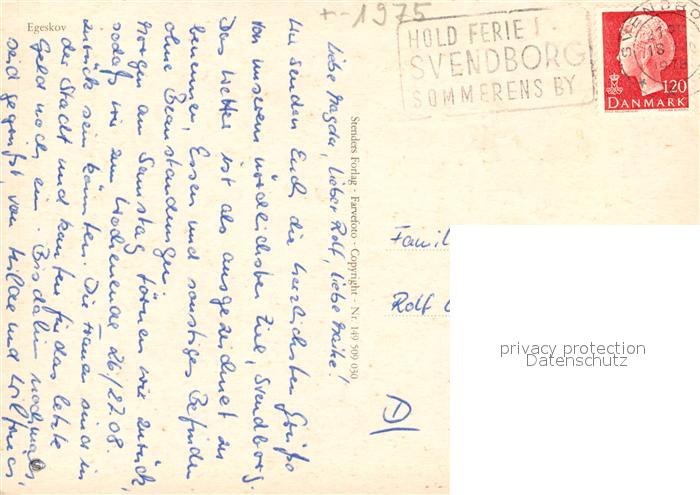 Egeskov
+--1975
HOLD FERIE I
SVENDBORG
SOMMERENS BY
SVENDBORG
120
DANMARK
Liebe Magda, lieber Rolf, liebe Heike!
Wir senden Euch die herzlichsten Grüße
von unserem nördlichsten Ziel, Svendborg.
Das Wetter ist als ausgezeichnet zu
benennen, Essen und sonstiges Befinden
ohne Beanstandungen.
Morgen am Samstag törnen wir zurück,
sodaß wir zum Wochenende 26/27.08.
zurück sein könnten. Die Frauen sind in
der Stadt und kaufen für das letzte
Geld noch ein. Bis dahin nochmals,
seid gegrüßt, von Hilde und
Stenders Forlag - Farvefoto - Copyright - Nr. 149 509 030
Famil
Rolf
D/
privacy protection
Datenschutz